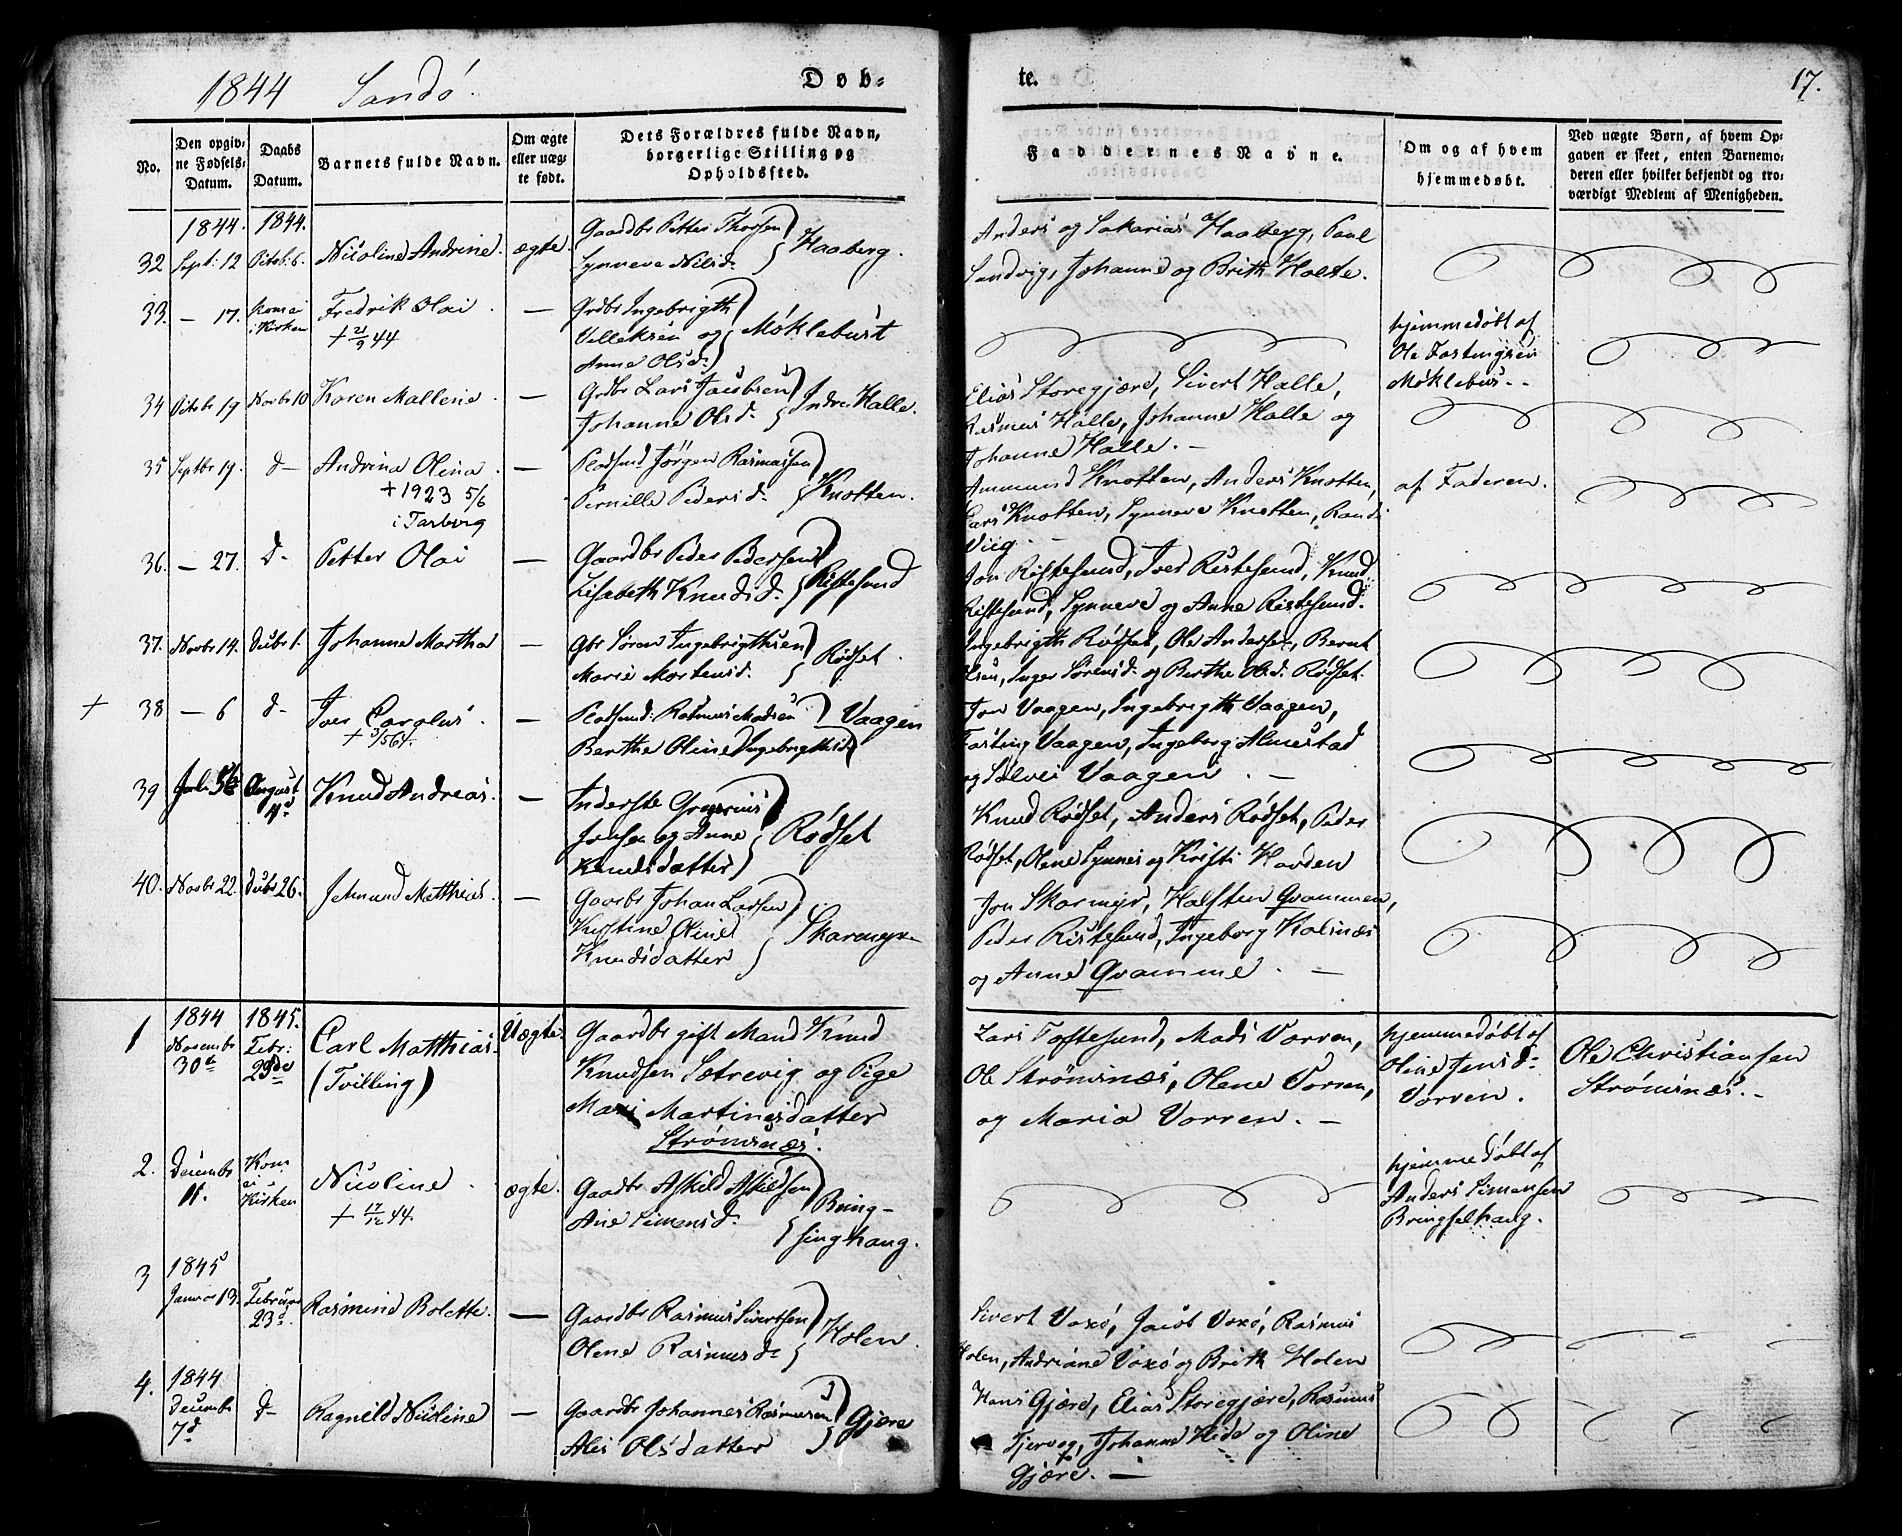 1844 Sandö.
Døb=
te.
17.
No.
Den opgiv=
ne Fødsels=
Datum.
Daabs
Datum.
Barnets fulde Navn.
Om ægte
eller uæg=
te født.
Dets Forældres fulde Navn,
borgerlige Stilling og
Opholdssted.
Faddernes Navne.
Om og af hvem
hjemmedøbt.
Ved uægte Børn, af hvem Op=
gaven er skeet, enten Barnemo=
deren eller hvilket bekjendt og tro=
værdigt Medlem af Menigheden.
1844. 1844.
32 Sept: 12 Octob: 6. Nicoline Andrine. ægte.
Gaardbr Petter Thorsen
Synneva Nilsd.
Haaberg.
Anders og Sakarias Haaberg, Paul
Sandvig, Johanne og Brith Holste.
33. — 17. Kom ei
i Kirken
Fredrik Olai —
+ 21/9 44
Grdbr Ingebrigth
Velleksen og
Anne Olsd.
Möklebust
hjemmedøbt af
Ole
Möklebus..
34 Octobr 19 Novbr 10 Karen Mallene. —
Grdbr Lars Jacobsen
Johanne Olsd.
Indre Halle.
Elias Storegjære, Sivert Halle,
Rasmus Halle, Johanne Halle og
Johanne Halle. —
35 Septbr 19. d— Andrina Olina —
+ 1923 5/6
i Tarberg
Pladsmd Jörgen Rasmussen
Pernille Pedersd.
Knotten.
Ammund Knotten, Anders Knotten,
Lars Knotten, Synneve Knotten, Randi
Viig. —
af Faderen.
36. — 27. d— Petter Olai —
Gaardbr Peder Pedersen
Lisabeth Knudsd.
Ristesund
Jon Ristesund, Iver Ristesund, Knud
Ristesund, Synneve og Anne Ristesund.
37. Novbr 14. Decbr 1. Johanne Martha —
Gbr Sören Ingebrigthsen
Marie Mortensd.
Rödset.
Ingebrigth Rödset, Ole Andersen, Bernt
Olsen, Inger Sörensd. og Berthe Olsd. Rödset.
+ 38 — 6 d— Iver Carolus. —
+ 3/5 64.
Pladsmd: Rasmus Madsen
Berthe Oline Ingebrigthsd.
Vaagen
Jon Vaagen, Ingebrigth Vaagen,
Fasting Vaagen, Ingeborg Almestad
og Sølvei Vaagen. —
39 August
Knud Andreas. —
Inderste
Jonsen og Anne
Knudsdatter
Rödset
Knud Rödset, Anders Rödset, Peder
Rödset, Olene Synnes og Kristi Havden
40. Novbr 22. Decbr 26. Jetmund Matthias. —
Gaardbr Johan Larsen
Kristine Oline
Knudsdatter
Skarmyr.
Jon Skarmyr, Halsten Qvammen,
Peder Ristesund, Ingeborg Kalsnæs
og Anne Qvamme. —
1
1844
Novembr
30te
1845.
Febr:
23de
Carl Matthias.
(Tvilling)
Uægte.
Gaardbr gift Mand Knud
Knudsen Sætrevig og Pige
Mari Martinusdatter
Strömsnæs.
Lars Toftesund, Mads Vorren,
Ole Strömsnæs, Olene Vorren,
og Maria Vorren. —
hjemmedøbt af
Oline Jensd.
Vorren.
Ole Christiansen
Strömsnæs.-
2. Decembr
11.
Kom
ei i
Kirken
Nicoline.
+ 17/12 44.
ægte.
Gaardbr Askild Askildsen
Ane Simensd.
Bring-
singhaug.
hjemmedøbt af
Anders Simensen
Bringselhaug.
3
1845
Januar 13. Februar
23d.
Rasmine Bolette. —
Gaardbr Rasmus Sivertsen
Olene Rasmusd.
Holen.
Sivert Voxö, Jacob Voxö, Rasmus
Holen, Andriane Voxö og Brith Holen
4.
1844
Decembr
7d
d—
Ragnild Nicoline —
Gaardbr Johannes Rasmusen
Ales Olsdatter
Gjære
Hans Gjære, Elias Storegjære, Rasmus
Tjervog, Johanne Hide og Oline
Gjære. —